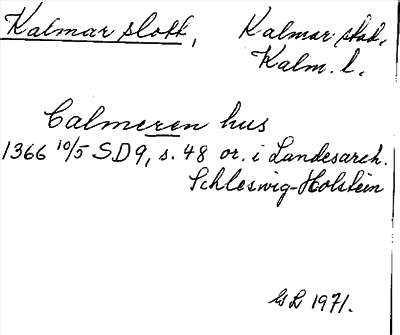 Kalmar slott, Kalmar stad.
Kalm. l.
Calmeren hus
1366 10/5 SD9, s. 48 or. i Landesarch.
Schleswig-Holstein
GL 1971.